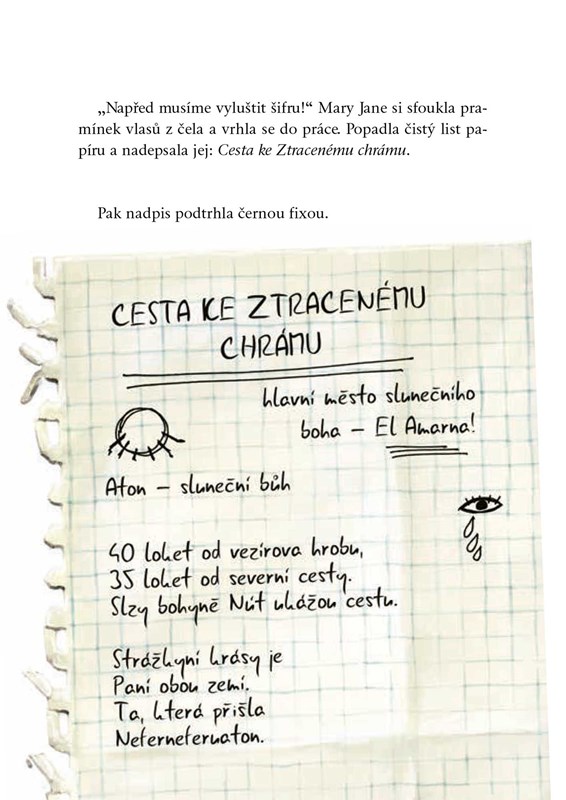 „Napřed musíme vyluštit šifru!“ Mary Jane si sfoukla pra-
mínek vlasů z čela a vrhla se do práce. Popadla čistý list pa-
píru a nadepsala jej: Cesta ke Ztracenému chrámu.
Pak nadpis podtrhla černou fixou.
CESTA KE ZTRACENÉMU
CHRÁMU
hlavní město slunečního
boha – El Amarna!
Aton – sluneční bůh
40 loket od vezírova hrobu,
35 loket od severní cesty.
Slzy bohyně Nút ukážou cestu.
Strážkyní krásy je
Paní obou zemí.
Ta, která přišla
Neferneferuaton.